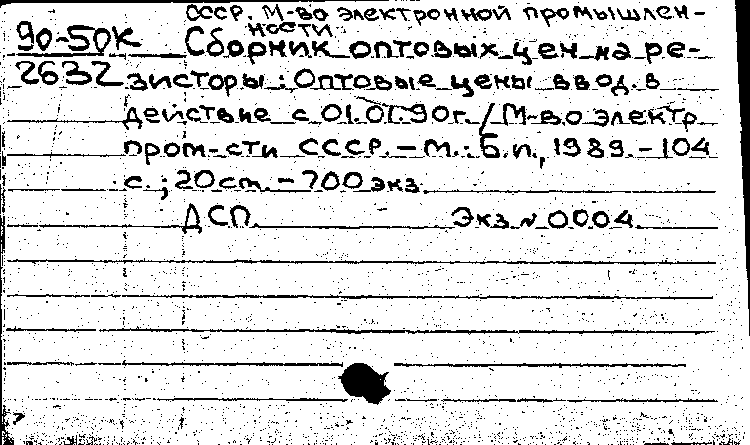 СССР. М-во электронной промышлен-
ности.
90-50К Сборник оптовых цен на ре-
2632 зисторы: Оптовые цены ввод. в
действие с 01.01.90г. / М-во электр.
пром-сти СССР. - М.: Б.и., 1989. - 104
с.; 20 см. - 700 экз.
ДСП. Экз. № 0004.